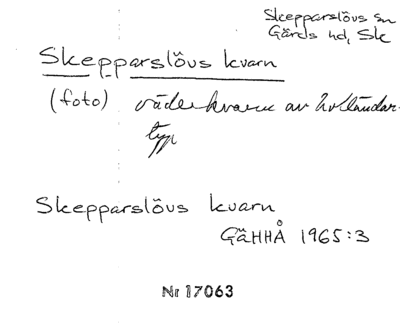 Skepparslövs sn
Gärds hd, Sk
Skepparslövs kvarn
(foto) väderkvarn av holländar-
typ
Skepparslövs kvarn
GäHHÅ 1965:3
Nr 17063